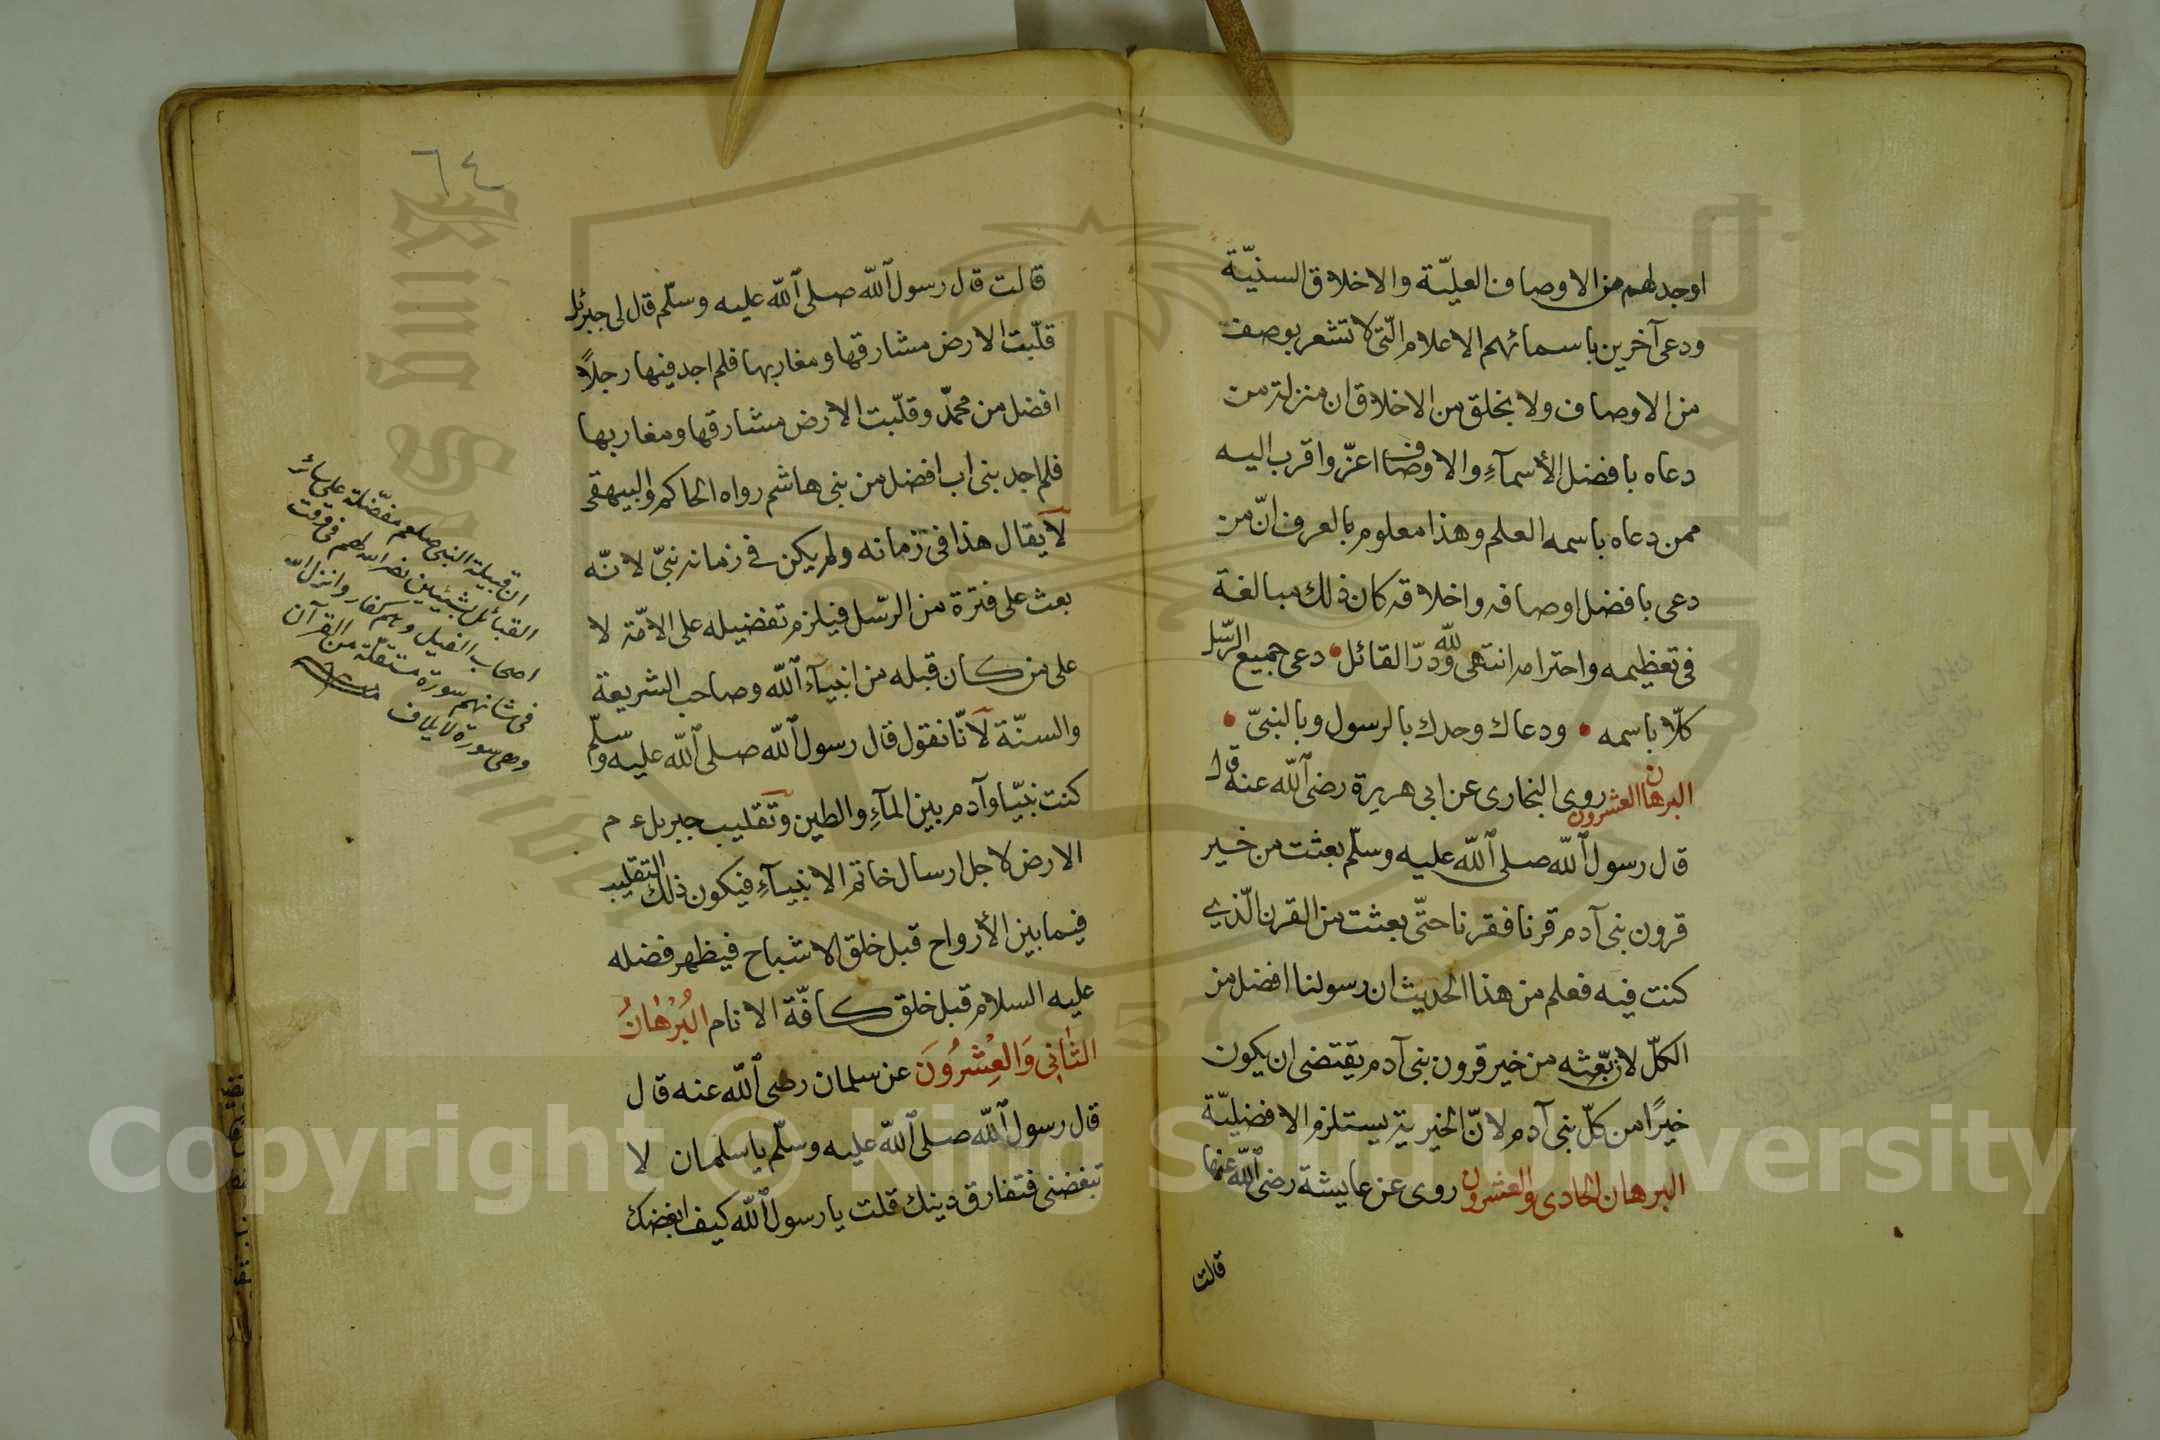 اوجد لهم من الاوصاف العليّة والاخلاق السنيّة
ودعى آخرين باسمائهم الاعلام الّتى لا تشعر بوصف
من الاوصاف ولا بخلق من الاخلاق ان منزلة من
دعاه بافضل الأسمآءِ والاوصاف اعزّ واقرب اليه
ممن دعاه باسمه العلم وهذا معلوم بالعرف انّ من
دعى بافضل اوصافه واخلاقه كان ذلك مبالغة
فى تعظيمه واحترامه انتهى ولله درّ القائل • دعى جميع الرّسل
كلّا باسمه • ودعاك وحدك بالرسول وبالنبىّ •
البرهان العشرون روى البخارى عن ابى هريرة رضى الله عنه قال
قال رسول الله صلى الله عليه وسلّم بعثت من خير
قرون بنى آدم قرنا فقرنا حتّى بعثت من القرن الّذى
كنت فيه فعلم من هذا الحديث ان رسولنا افضل من
الكلّ لان بعثه من خير قرون بنى آدم يقتضى ان يكون
خيرًا من كلّ بنى آدم لانّ الخيرية يستلزم الافضليّة
البرهان الحادى والعشرون روى عن عايشة رضى الله عنها
قالت
٦٤
قالت قال رسول الله صلى الله عليه وسلّم قال لى جبرئل
قلّبت الارض مشارقها ومغاربها فلم اجد فيها رجلاً
افضل من محمّد وقلّبت الارض مشارقها ومغاربها
فلم اجد بنى اب افضل من بنى هاشم رواه الحاكم والبيهقى
لا يقال هذا فى زمانه ولم يكن فى زمانه نبىّ لانّه
بعث على فترة من الرّسل فيلزم تفضيله على الامّة لا
على من كان قبله من انبيآء الله وصاحب الشريعة
والسنّة لانّا نقول قال رسول الله صلى الله عليه وسلّم
كنت نبيّا وآدم بين المآءِ والطين وتقليب جبريل ء م
الارض لاجل ارسال خاتم الانبيآءِ فيكون ذلك التقليب
فيما بين الأرواح قبل خلق الاشباح فيظهر فضله
عليه السلام قبل خلق كافّة الانام البُرْهَانُ
الثانِى وَالعِشْرُونَ عن سلمان رضى الله عنه قال
قال رسول الله صلى الله عليه وسلّم يا سلمان لا
تبغضنى فتفارق دينك قلت يا رسول الله كيف ابغضك
انّ قبيلة النبى صلعم مفضّلة على سائر
القبائل بشيئين نصر الله لهم فى وقت
اصحاب الفيل وهم كفار وانزل الله
فى شانهم سورة مستقلّة من القرآن
وهى سورة لايلاف
Copyright © King Saud University
King Saud University
1957